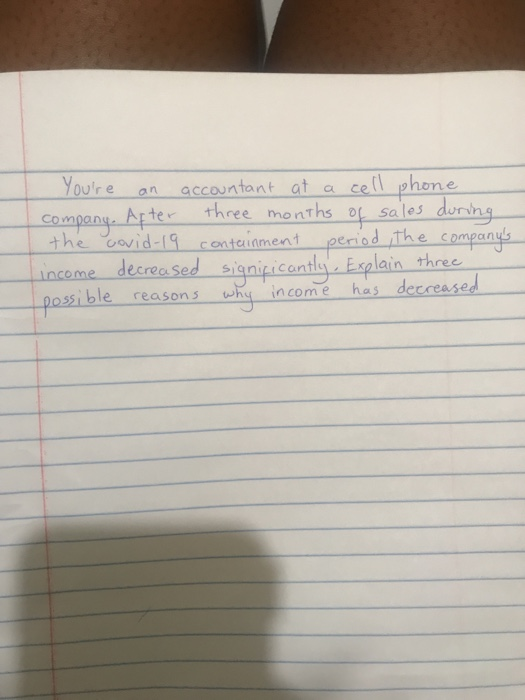 You're an accountant at a cell phone
company. After three months of sales during
the covid-19 containment period, the company's
income decreased significantly. Explain three
possible reasons why income has decreased